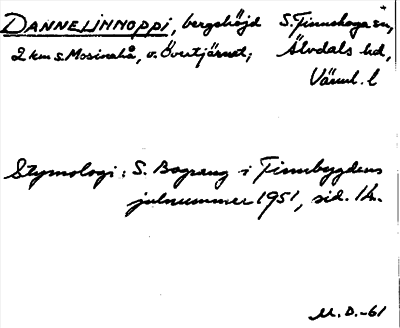 DANNELINNOPPI, bergshöjd S. Finnskoga sn,
2 km s. Mosinahå, v. Övertjärnet, Älvdals hd,
Värml. l
Etymologi: S. Bograng i Finnbygdens
julnummer 1951, sid. 14.
M.D.-61